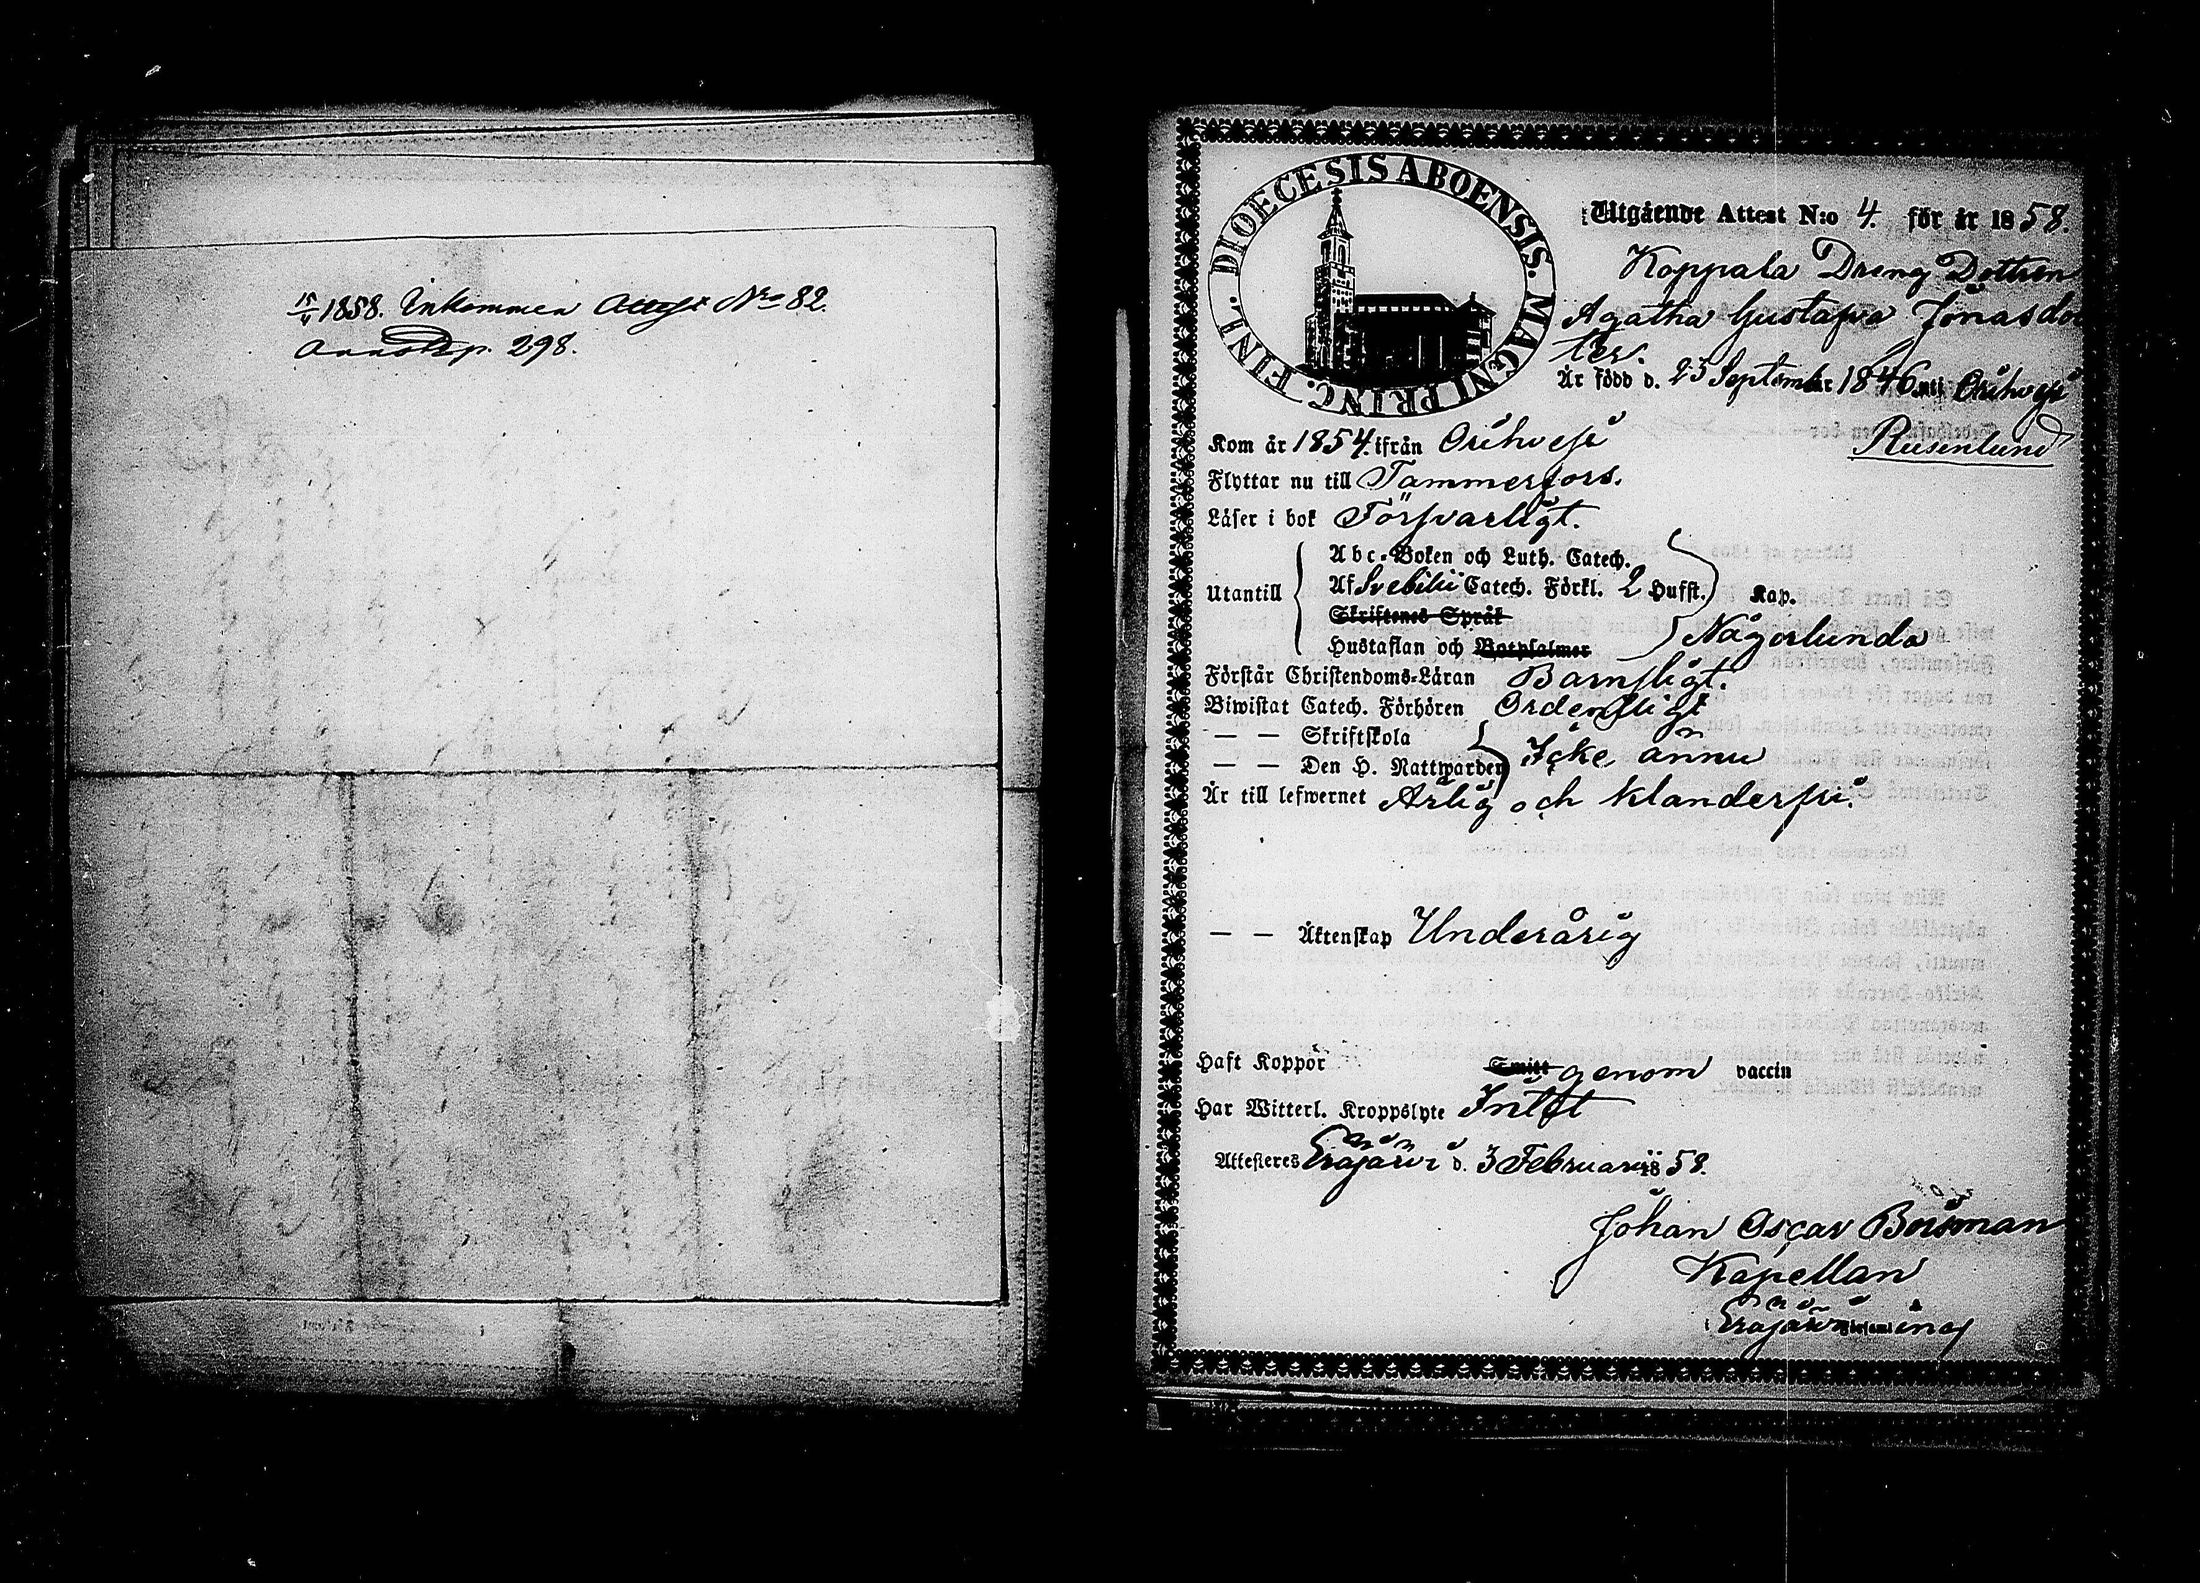 15/4 1858. Inkommen Attest No 82.
p. 298.
DIOECESIS ABOENSIS. MAGNI PRINC. FINL.
Utgående Attest N:o 4. för år 1858.
Koppala Dreng Dottren
Agatha Gustafva Jonasdot
ter.
Är född d. 25 September 1846 uti Orihvesi
Kom år 1854. ifrån Orihvesi
Rusenlund
Flyttar nu till Tammerfors.
Läser i bok Försvarligt.
Utantill
Abc-Boken och Luth. Catech.
Af Svebilii Catech. Förkl. 2 Hufst. Kap.
Skriftenes Språk
Hustaflan och Botpsalmer Någorlunda
Förstår Christendoms-Läran Barnsligt.
Biwistat Catech. Förhören Ordentligt
— — Skriftskola
— — Den H. Nattwarden Icke ännu
Är till lefwernet Ärlig och klanderfri.
— — Äktenskap Underårig
Haft Koppor Smitt genom vaccin
Har Witterl. Kroppslyte Intet
Attesteres Eräjärvi d. 3 Februarii 1858.
Johan Oscar Boisman
Kapellan